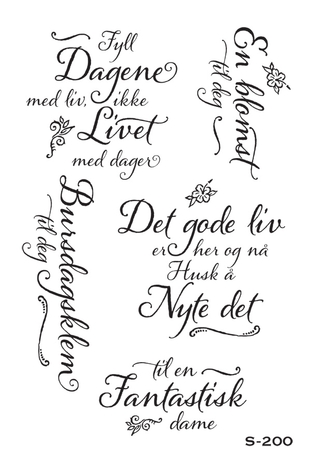 Fyll
Dagene
med liv, ikke
Livet
med dager
En blomst
til deg
Bursdagsklem
til deg
Det gode liv
er her og nå
Husk å
Nyte det
til en
Fantastisk
dame
S-200